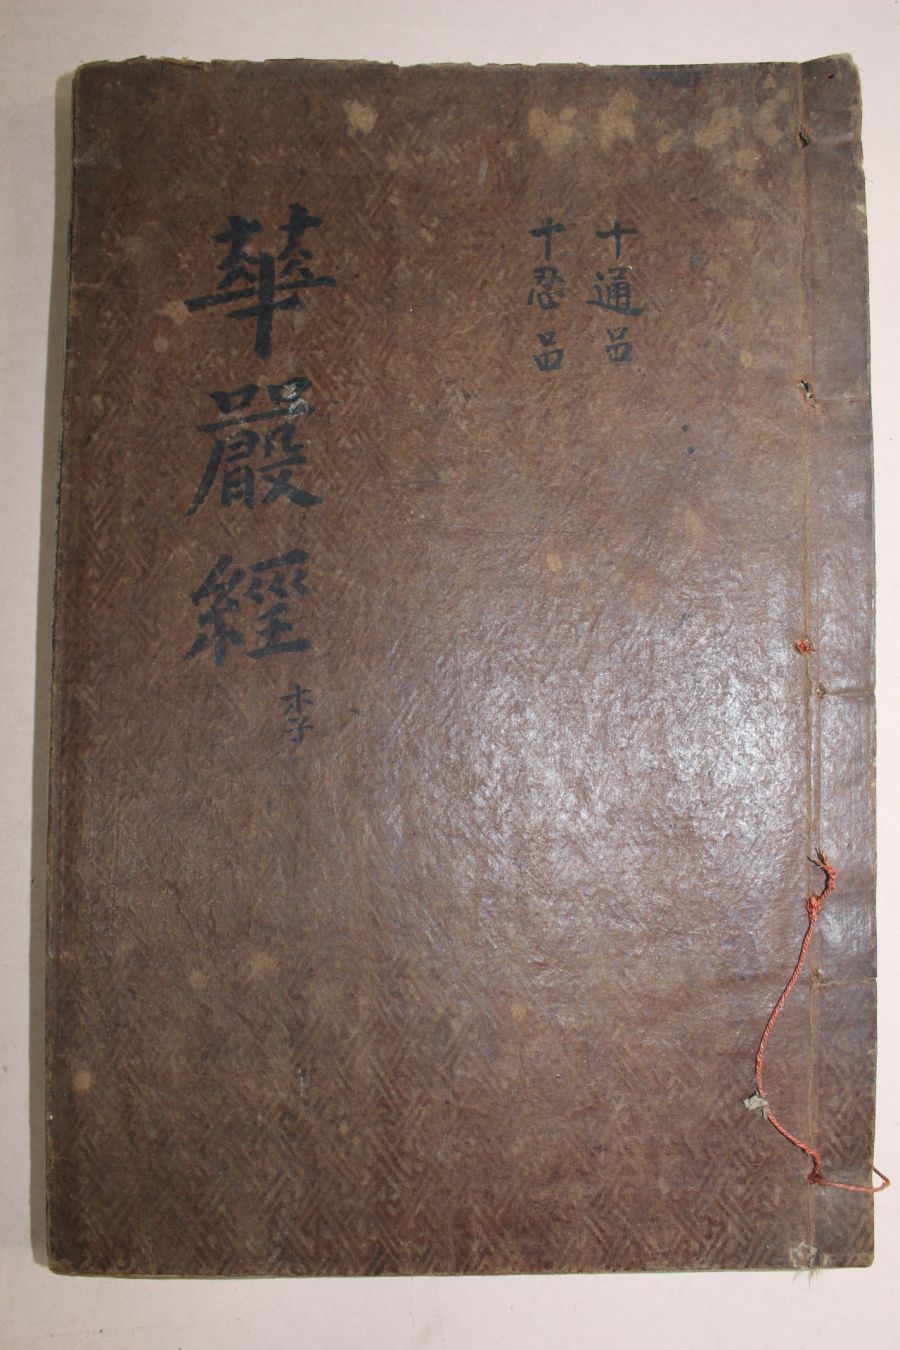 十通品
十忍品
華嚴經
李